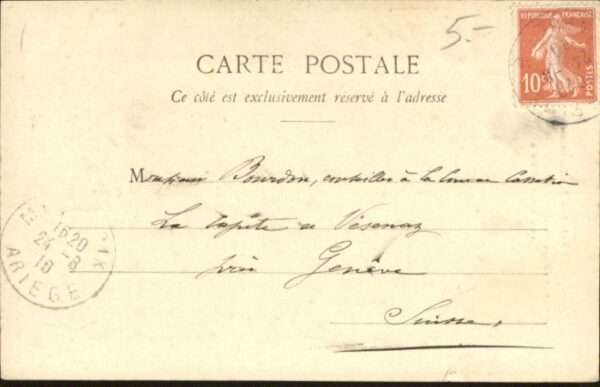 5-
REPUBLIQUE FRANÇAISE
10c
POSTES
CARTE POSTALE
Ce côté est exclusivement réservé à l'adresse
Monsieur Bourdon, conseiller à la Cour de Cassation
La Capite à Vésenaz
près Genève
Suisse.
16 20
24-8
10
ARIEGE